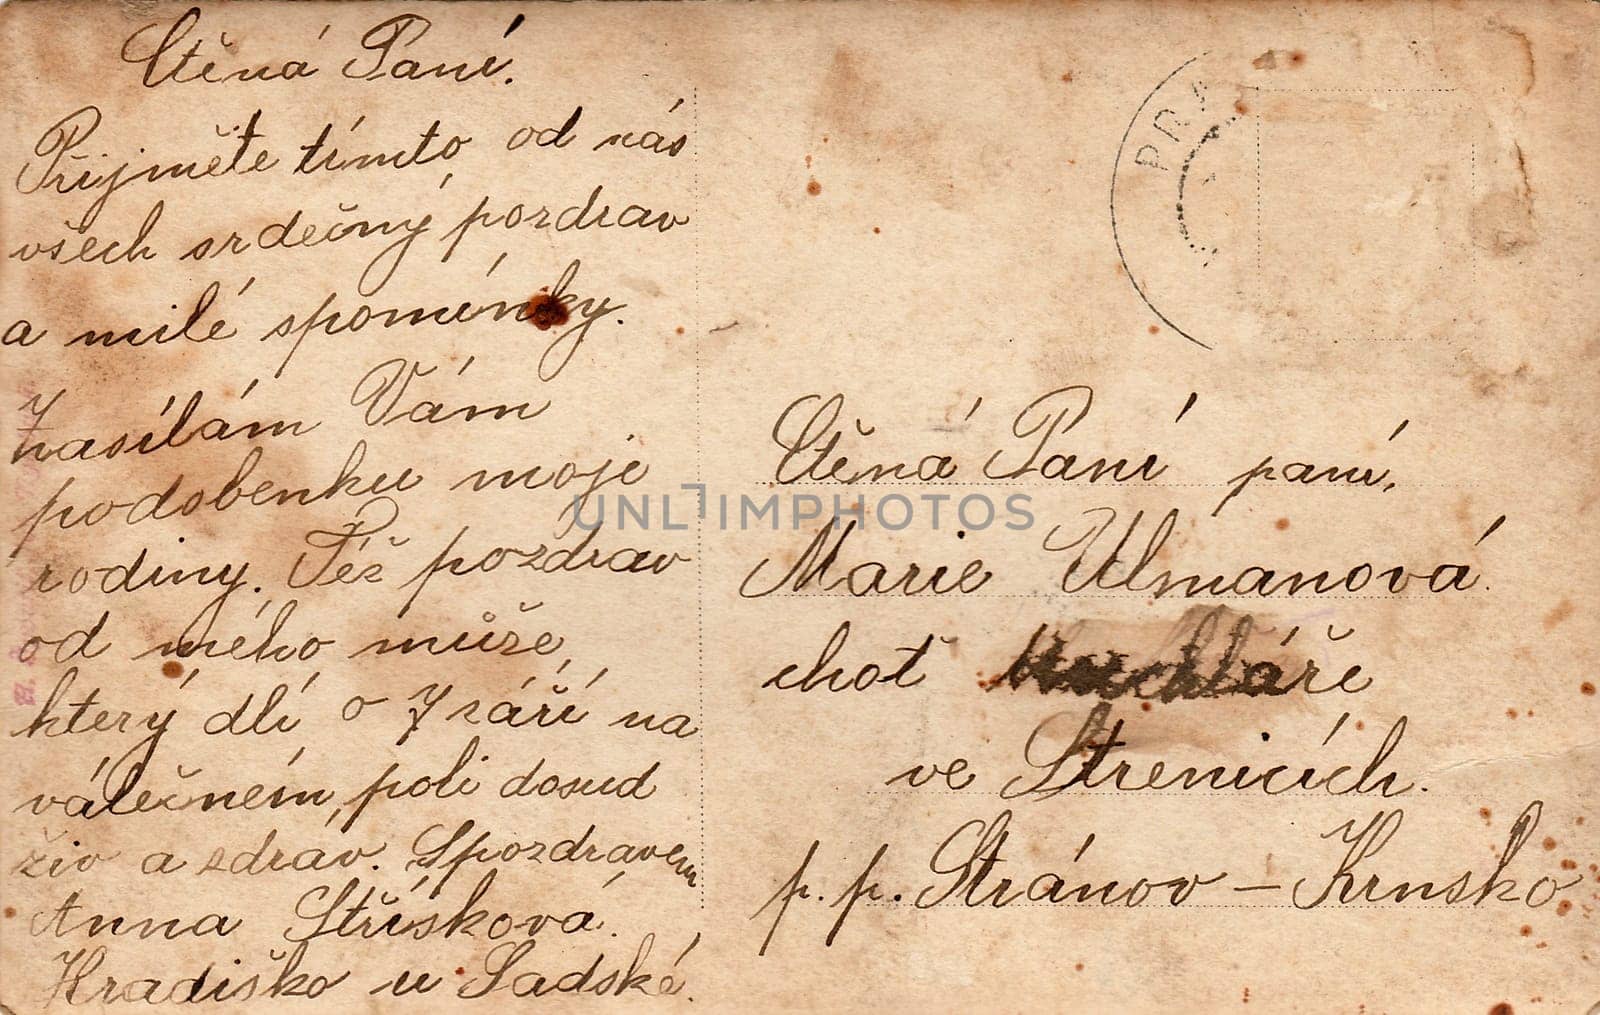 Ctěná Paní.
Přijměte tímto, od nás
všech srdečný pozdrav
a milé spomínky.
Zasílám Vám
podobenku moje
rodiny. Též pozdrav
od mého muže,
který dlí o 7 září na
válečném, poli dosud
živ a zdráv. Spozdravem
Anna Střísková.
Hradiško u Sadské.
PRA
Ctěná Paní paní,
Marie Ulmanová.
choť
ve Strenicích.
p. p. Stránov – Krnsko
UNLIMPHOTOS